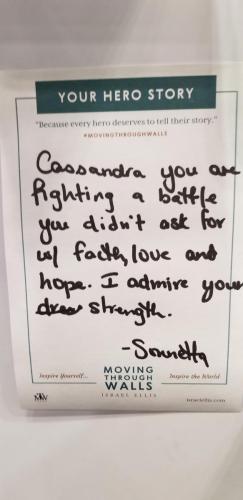 YOUR HERO STORY
"Because every hero deserves to tell their story."
#MOVINGTHROUGHWALLS
Cassandra you are
fighting a battle
you didn't ask for
w/ faith, love and
hope. I admire your
strength.
-Sonnetta
Inspire Yourself...
MOVING
THROUGH
WALLS
Inspire the World
ISRAEL ELLIS
israelellis.com